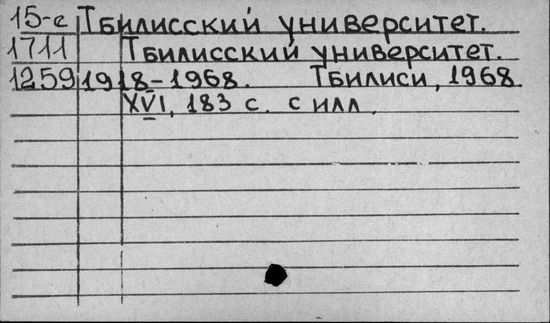 15-е Тбилисский университет.
1711 Тбилисский университет.
1259 1918-1968. Тбилиси, 1968.
XVI, 183 с. с илл.